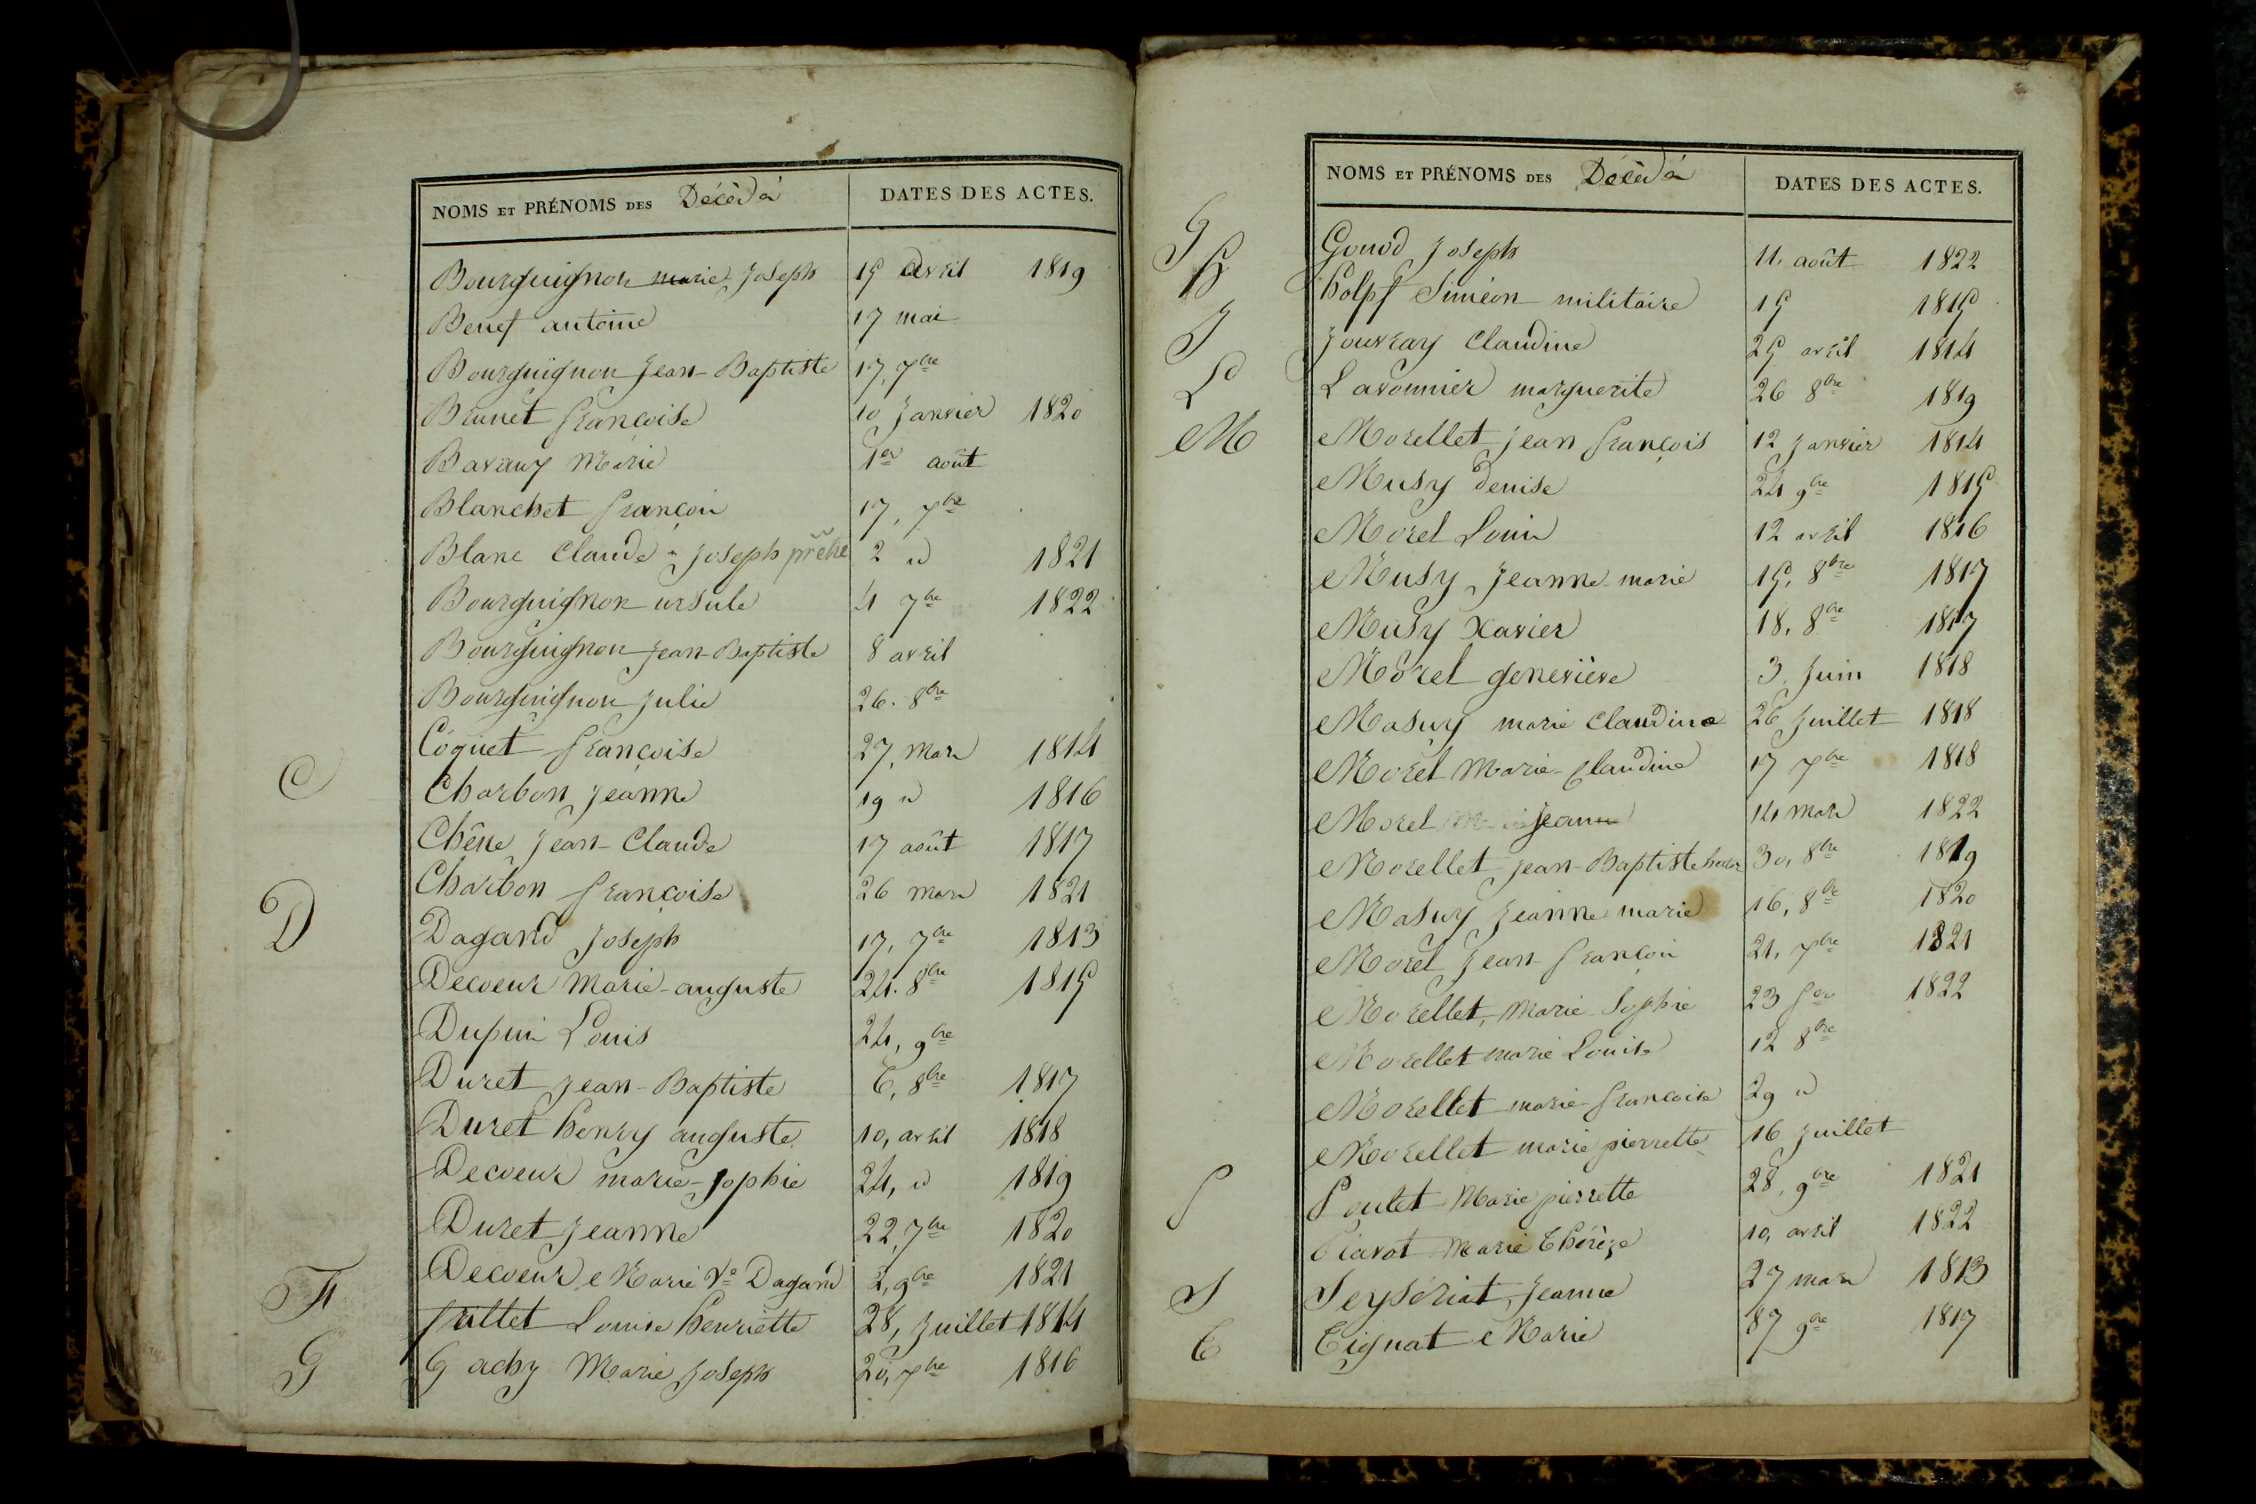 NOMS ET PRÉNOMS DES Décédés DATES DES ACTES.
Bourguignon marie Joseph 15 avril 1819
Benef antoine 17 mai
Bourguignon Jean-Baptiste 17, 7bre
Brunet françoise 10 Janvier 1820
Bavaux Marie 1er août
Blanchet françois 17, 7bre
Blanc Claude-Joseph 2 " 1821
Bourguignon ursule 4 7bre 1822
Bourguignon Jean-Baptiste 8 avril
Bourguignon Julie 26. 8bre
C Coquet françoise 27, mars 1814
Charbon Jeanne 19 " 1816
Chêne Jean-Claude 17 août 1817
Charbon françoise 26 mars 1821
D Dagand Joseph 17, 7bre 1813
Decoeur Marie-auguste 24. 8bre 1815
Dupuis Louis 24, 9bre
Duret Jean-Baptiste 6, 8bre 1817
Duret henry auguste 10, avril 1818
Decoeur marie-sophie 24, " 1819
Duret Jeanne 22, 7bre 1820
Decoeur Marie Ve Dagand 2, 9bre 1821
F fillet Louise henriette 28, Juillet 1814
G Gachy Marie Joseph 20, 7bre 1816
NOMS ET PRÉNOMS DES Décédés DATES DES ACTES.
G Gouod Joseph 11. août 1822
H holpf Siméon militaire 15 1815
J Jouvray Claudine 25 avril 1814
L Lavonnier marguerite 26 8bre 1819
M Morellet Jean françois 12 Janvier 1814
Musy denise 24 9bre 1815
Morel Louis 12 avril 1816
Musy Jeanne-marie 15, 8bre 1817
Musy Xavier 18, 8bre 1817
Morel geneviève 3, Juin 1818
Masuy marie Claudine 26 Juillet 1818
Morel Marie-Claudine 17 7bre 1818
Morel Jeanne 14 mars 1822
Morellet Jean-Baptiste 30, 8bre 1819
Masuy Jeanne marie 16, 8bre 1820
Morel Jean-françois 21, 7bre 1821
Morellet, Marie-Sophie 23 fer 1822
Morellet marie Louise 12 8bre
Morellet marie-françoise 29 "
Morellet marie pierrette 16 Juillet
P Poulet Marie pierrette 28, 9bre 1821
Piavot Marie Thérèze 10, avril 1822
S Seyseriat, Jeanne 27 mars 1813
T Tignat Marie 9bre 1817